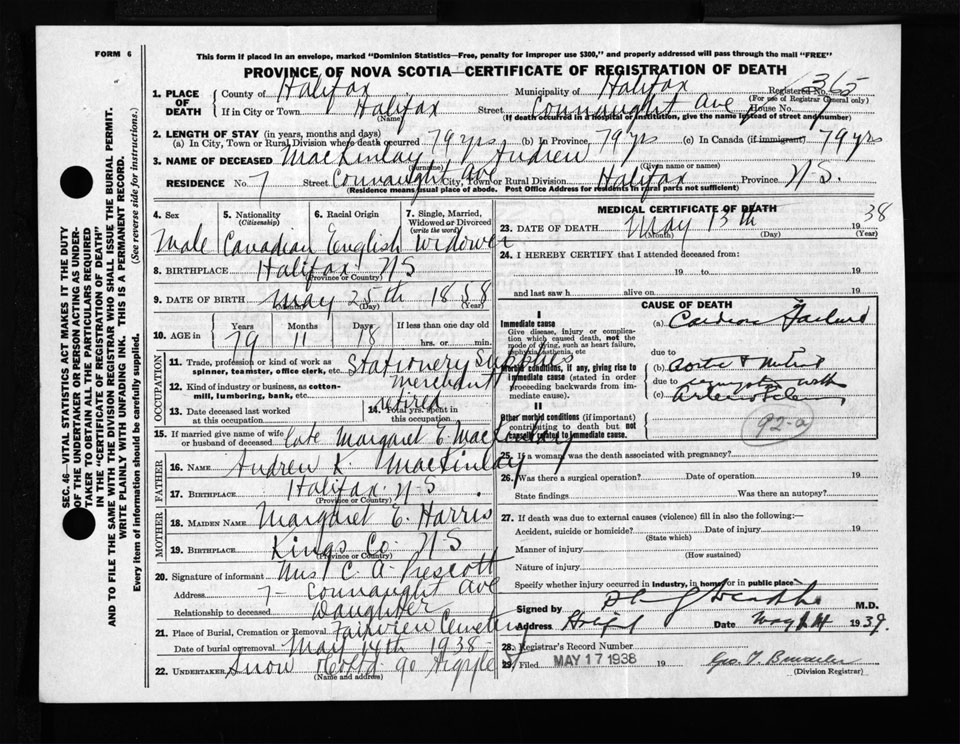 FORM 6
This form if placed in an envelope, marked "Dominion Statistics—Free, penalty for improper use $300," and properly addressed will pass through the mail "FREE"
PROVINCE OF NOVA SCOTIA—CERTIFICATE OF REGISTRATION OF DEATH
SEC. 46—VITAL STATISTICS ACT MAKES IT THE DUTY
OF THE UNDERTAKER OR PERSON ACTING AS UNDER-
TAKER TO OBTAIN ALL THE PARTICULARS REQUIRED
IN THE "CERTIFICATE OF REGISTRATION OF DEATH"
AND TO FILE THE SAME WITH THE DIVISION REGISTRAR WHO SHALL ISSUE THE BURIAL PERMIT.
WRITE PLAINLY WITH UNFADING INK. THIS IS A PERMANENT RECORD.
Every item of information should be carefully supplied. (See reverse side for instructions.)
1. PLACE OF DEATH County of Halifax Municipality of Halifax Registered No. 365
(For use of Registrar General only)
If in City or Town Halifax Street Connaught Ave House No.
(Name) (If death occurred in a hospital or institution, give the name instead of street and number)
2. LENGTH OF STAY (in years, months and days)
(a) In City, Town or Rural Division where death occurred 79 yrs (b) In Province 79 yrs (c) In Canada (if immigrant) 79 yrs
3. NAME OF DECEASED MacKinlay, Andrew
(Surname) (Given name or names)
RESIDENCE No. 7 Street Connaught Ave City, Town or Rural Division Halifax Province N.S.
(Residence means usual place of abode. Post Office Address for residents in rural parts not sufficient)
4. Sex 5. Nationality (Citizenship) 6. Racial Origin 7. Single, Married, Widowed or Divorced (write the word)
Male Canadian English Widower
8. BIRTHPLACE Halifax NS
(Province or Country)
9. DATE OF BIRTH May 25th 1858
(Month) (Day) (Year)
10. AGE in Years Months Days If less than one day old
79 11 18 hrs. or min.
OCCUPATION
11. Trade, profession or kind of work as spinner, teamster, office clerk, etc. Stationery Supplies
12. Kind of industry or business, as cotton-mill, lumbering, bank, etc. merchant
retired
13. Date deceased last worked at this occupation 14. Total yrs. spent in this occupation
15. If married give name of wife or husband of deceased late Margaret E. MacKinlay
FATHER
16. NAME Andrew K. MacKinlay
17. BIRTHPLACE Halifax N.S.
(Province or Country)
MOTHER
18. MAIDEN NAME Margaret E. Harris
19. BIRTHPLACE Kings Co. NS
(Province or Country)
20. Signature of informant Mrs C. A. Prescott
Address 7- Connaught Ave
Relationship to deceased Daughter
21. Place of Burial, Cremation or Removal Fairview Cemetery
Date of burial or removal May 14th 1938
22. UNDERTAKER Snow 90 Argyle
(Name and address)
MEDICAL CERTIFICATE OF DEATH
23. DATE OF DEATH May 13th 1938
(Month) (Day) (Year)
24. I HEREBY CERTIFY that I attended deceased from:
19 to 19
and last saw h alive on 19
CAUSE OF DEATH
I
Immediate cause
Give disease, injury or complication which caused death, not the mode of dying, such as heart failure, asphyxia, asthenia, etc
(a) Cardiac Failure
due to
Morbid conditions, if any, giving rise to immediate cause (stated in order proceeding backwards from immediate cause).
(b) Aortic + Mitral
due to
(c) with
Arterio
II
Other morbid conditions (if important) contributing to death but not causally related to immediate cause
92-a
25. If a woman was the death associated with pregnancy?
26. Was there a surgical operation? Date of operation 19
State findings Was there an autopsy?
27. If death was due to external causes (violence) fill in also the following:—
Accident, suicide or homicide? Date of injury 19
(State which)
Manner of injury
(How sustained)
Nature of injury
Specify whether injury occurred in industry, in home, or in public place
Signed by M.D.
Address Date May 14 1938.
28. Registrar's Record Number
29. Filed MAY 17 1938 19
(Division Registrar)